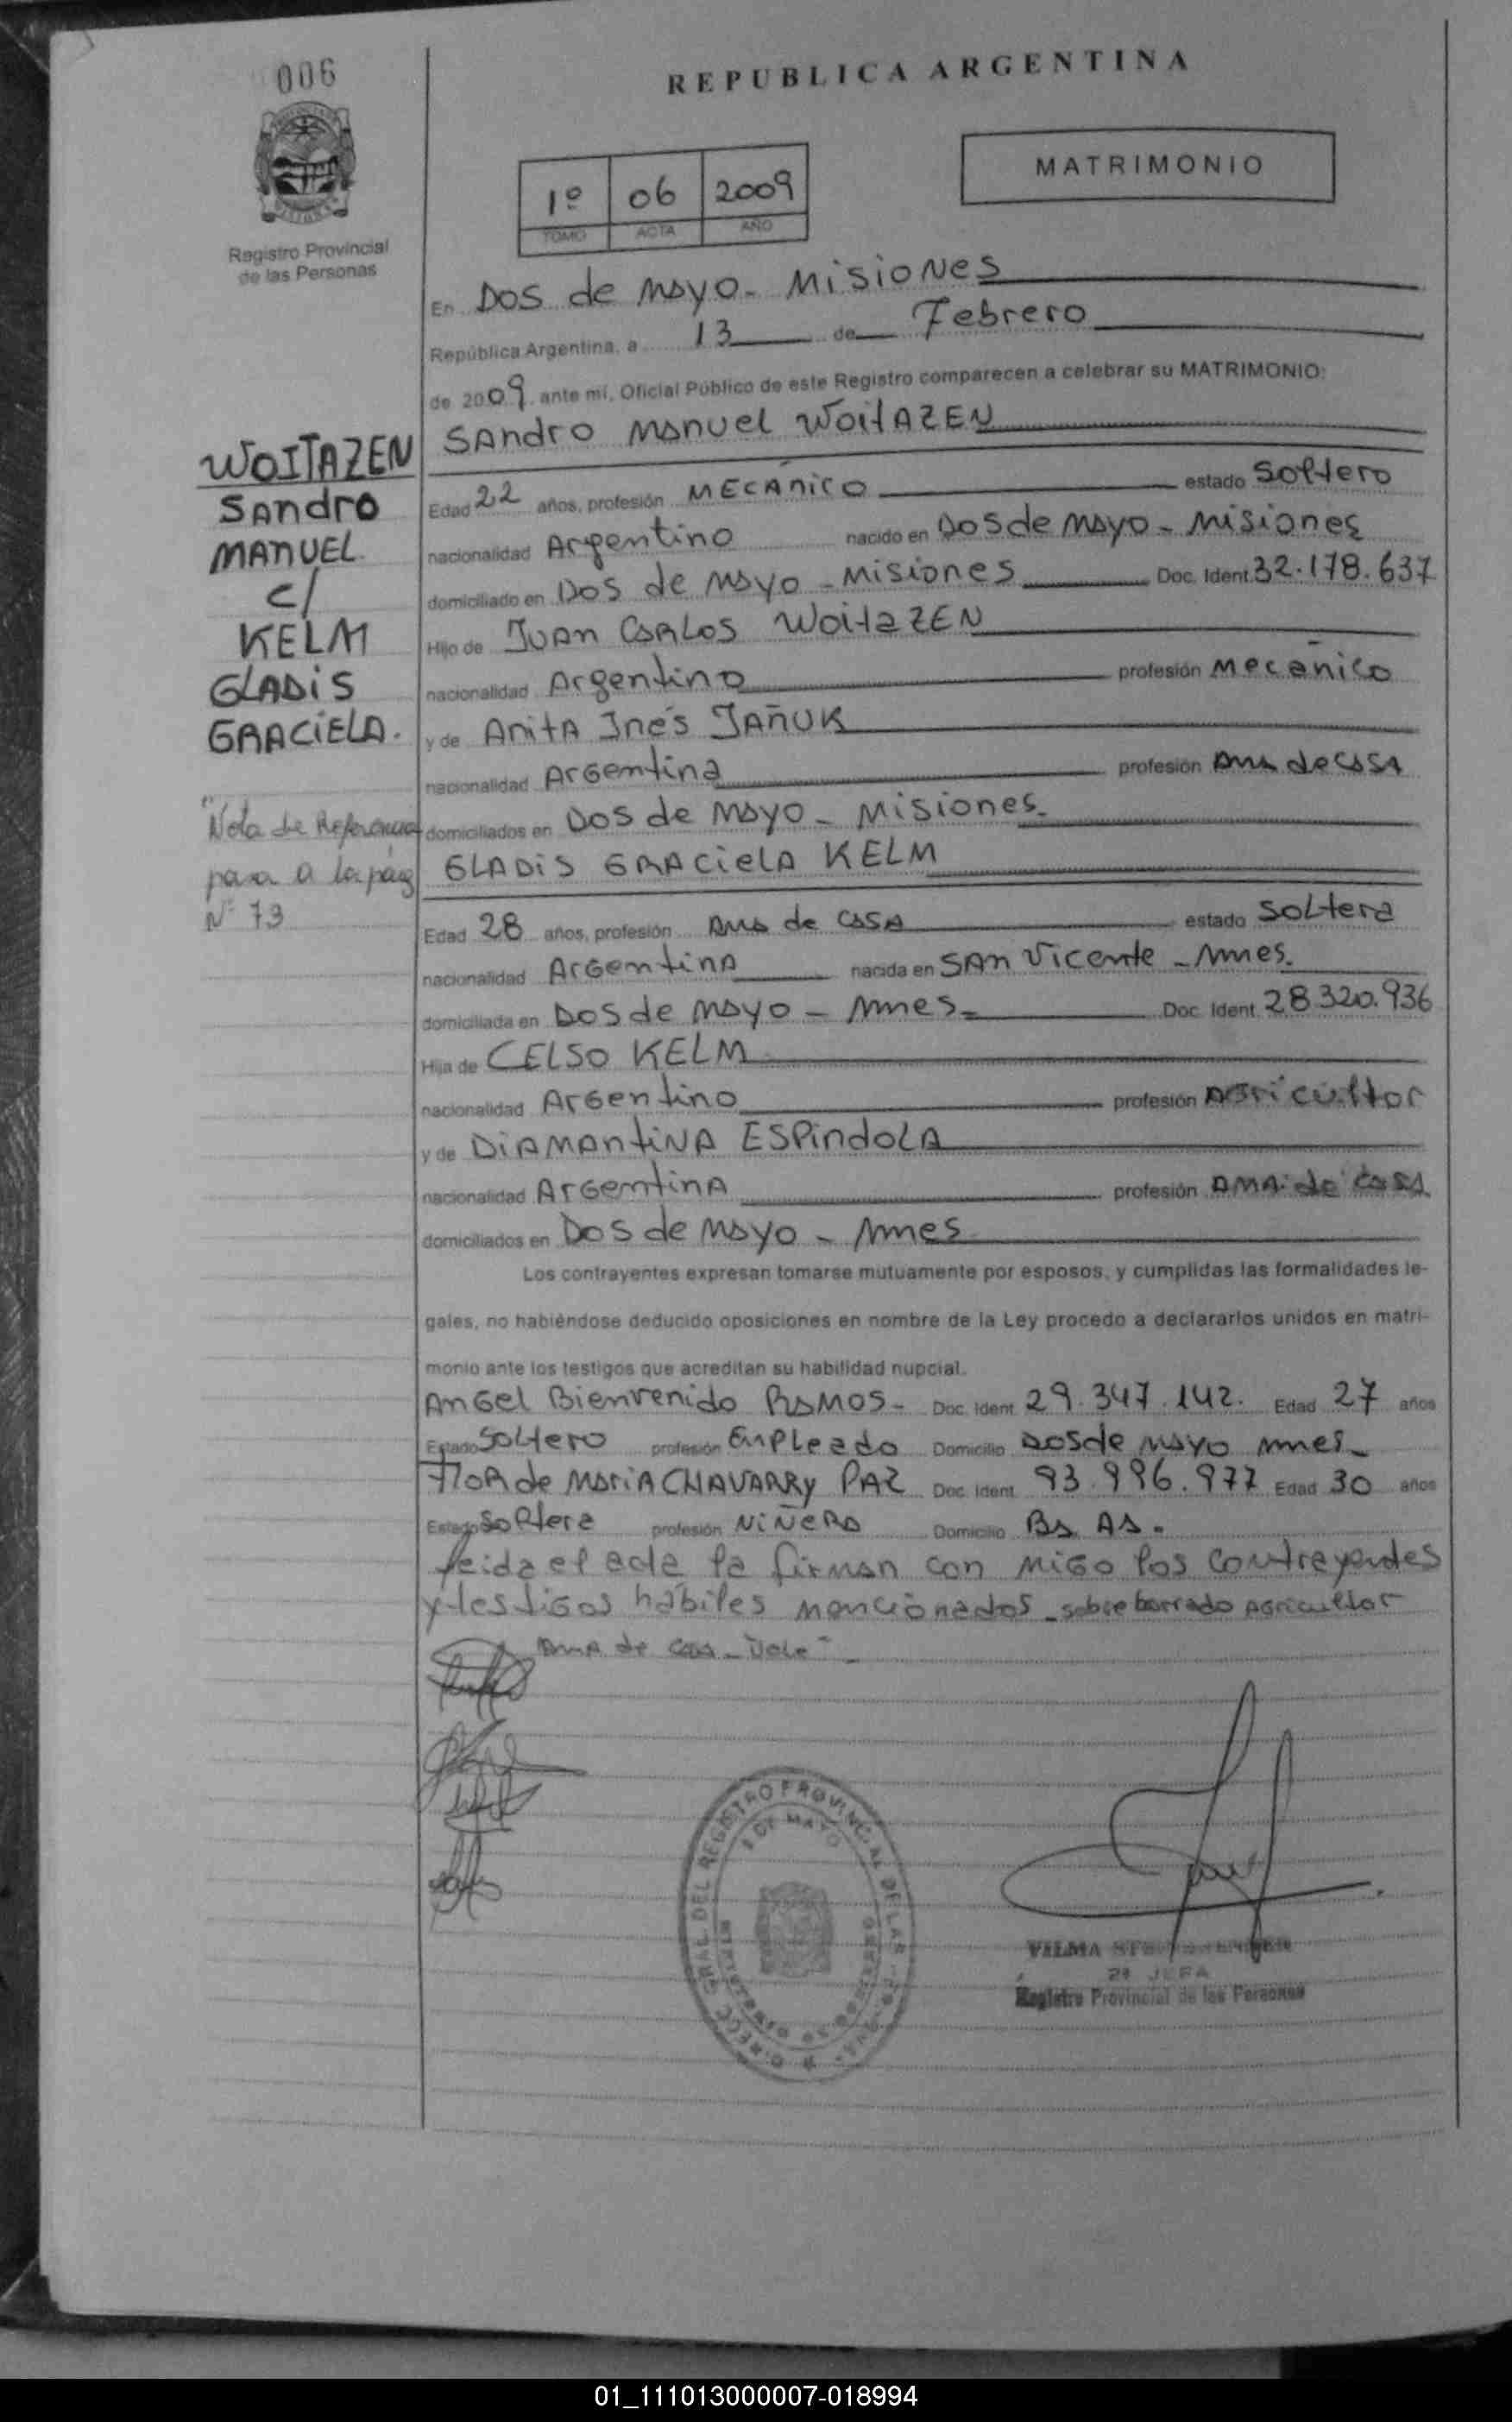 006
REPUBLICA ARGENTINA
MATRIMONIO
1º 06 2009
TOMO ACTA AÑO
Registro Provincial
de las Personas
En Dos de Mayo - Misiones
República Argentina, a 13 de Febrero
de 2009 ante mí, Oficial Público de este Registro comparecen a celebrar su MATRIMONIO:
Sandro Manuel WoitAZEN
WOITAZEN
Sandro
MANUEL.
c/
KELM
GLADIS
GRACIELA.
Edad 22 años, profesión MECÁNICO estado Soltero
nacionalidad Argentino nacido en Dos de Mayo - Misiones
domiciliado en Dos de Mayo - Misiones Doc. Ident. 32.178.637
Hijo de JUAN CARLOS WoitaZEN
nacionalidad Argentino profesión Mecánico
y de Anita Inés JAÑUK
nacionalidad Argentina profesión Ama de casa
domiciliados en Dos de Mayo - Misiones.
"Nota de Referencia
pasa a la pág
Nº 73
GLADIS GRACIELA KELM
Edad 28 años, profesión Ama de casa estado Soltera
nacionalidad Argentina nacida en SAN Vicente - Mnes.
domiciliada en Dos de Mayo - Mnes - Doc. Ident. 28.320.936
Hija de CELSO KELM
nacionalidad Argentino profesión Agricultor
y de DIAMANTINA ESPINDOLA
nacionalidad Argentina profesión AMA de casa
domiciliados en Dos de Mayo - Mnes
Los contrayentes expresan tomarse mutuamente por esposos, y cumplidas las formalidades le-
gales, no habiéndose deducido oposiciones en nombre de la Ley procedo a declararlos unidos en matri-
monio ante los testigos que acreditan su habilidad nupcial.
Angel Bienvenido RAMOS - Doc. Ident. 29.347.142. Edad 27 años
Estado Soltero profesión Empleado Domicilio Dos de Mayo Mnes -
Flor de MARIA CHAVARRY PAZ Doc. Ident. 93.996.977 Edad 30 años
Estado Soltera profesión NIÑERA Domicilio Bs As.
leida el acta la firman con migo los contrayentes
y testigos hábiles mencionados - sobre borrado Agricultor
Ama de casa - Vale -
DIRECC. GRAL. DEL REGISTRO PROVINCIAL DE LAS PERSONAS
2 DE MAYO
VILMA
2ª JEFA
Registro Provincial de las Personas
01_111013000007-018994